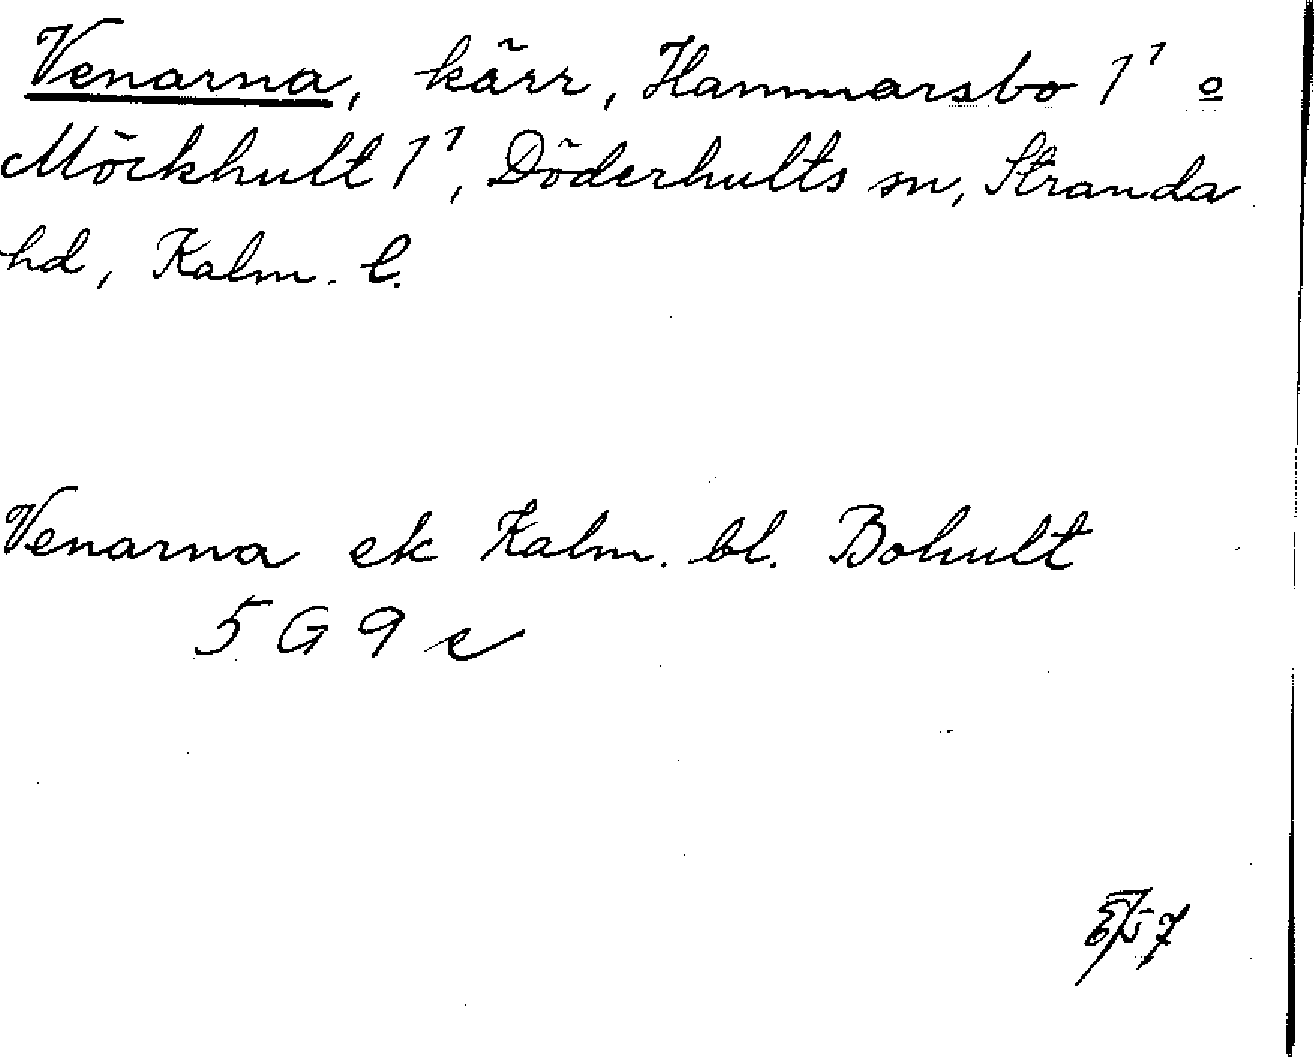 Venarna, kärr, Hammarsbo 1¹ o
Möckhult 1¹, Döderhults sn, Stranda
hd, Kalm. l.
Venarna ek Kalm. bl. Bohult
5 G 9 c